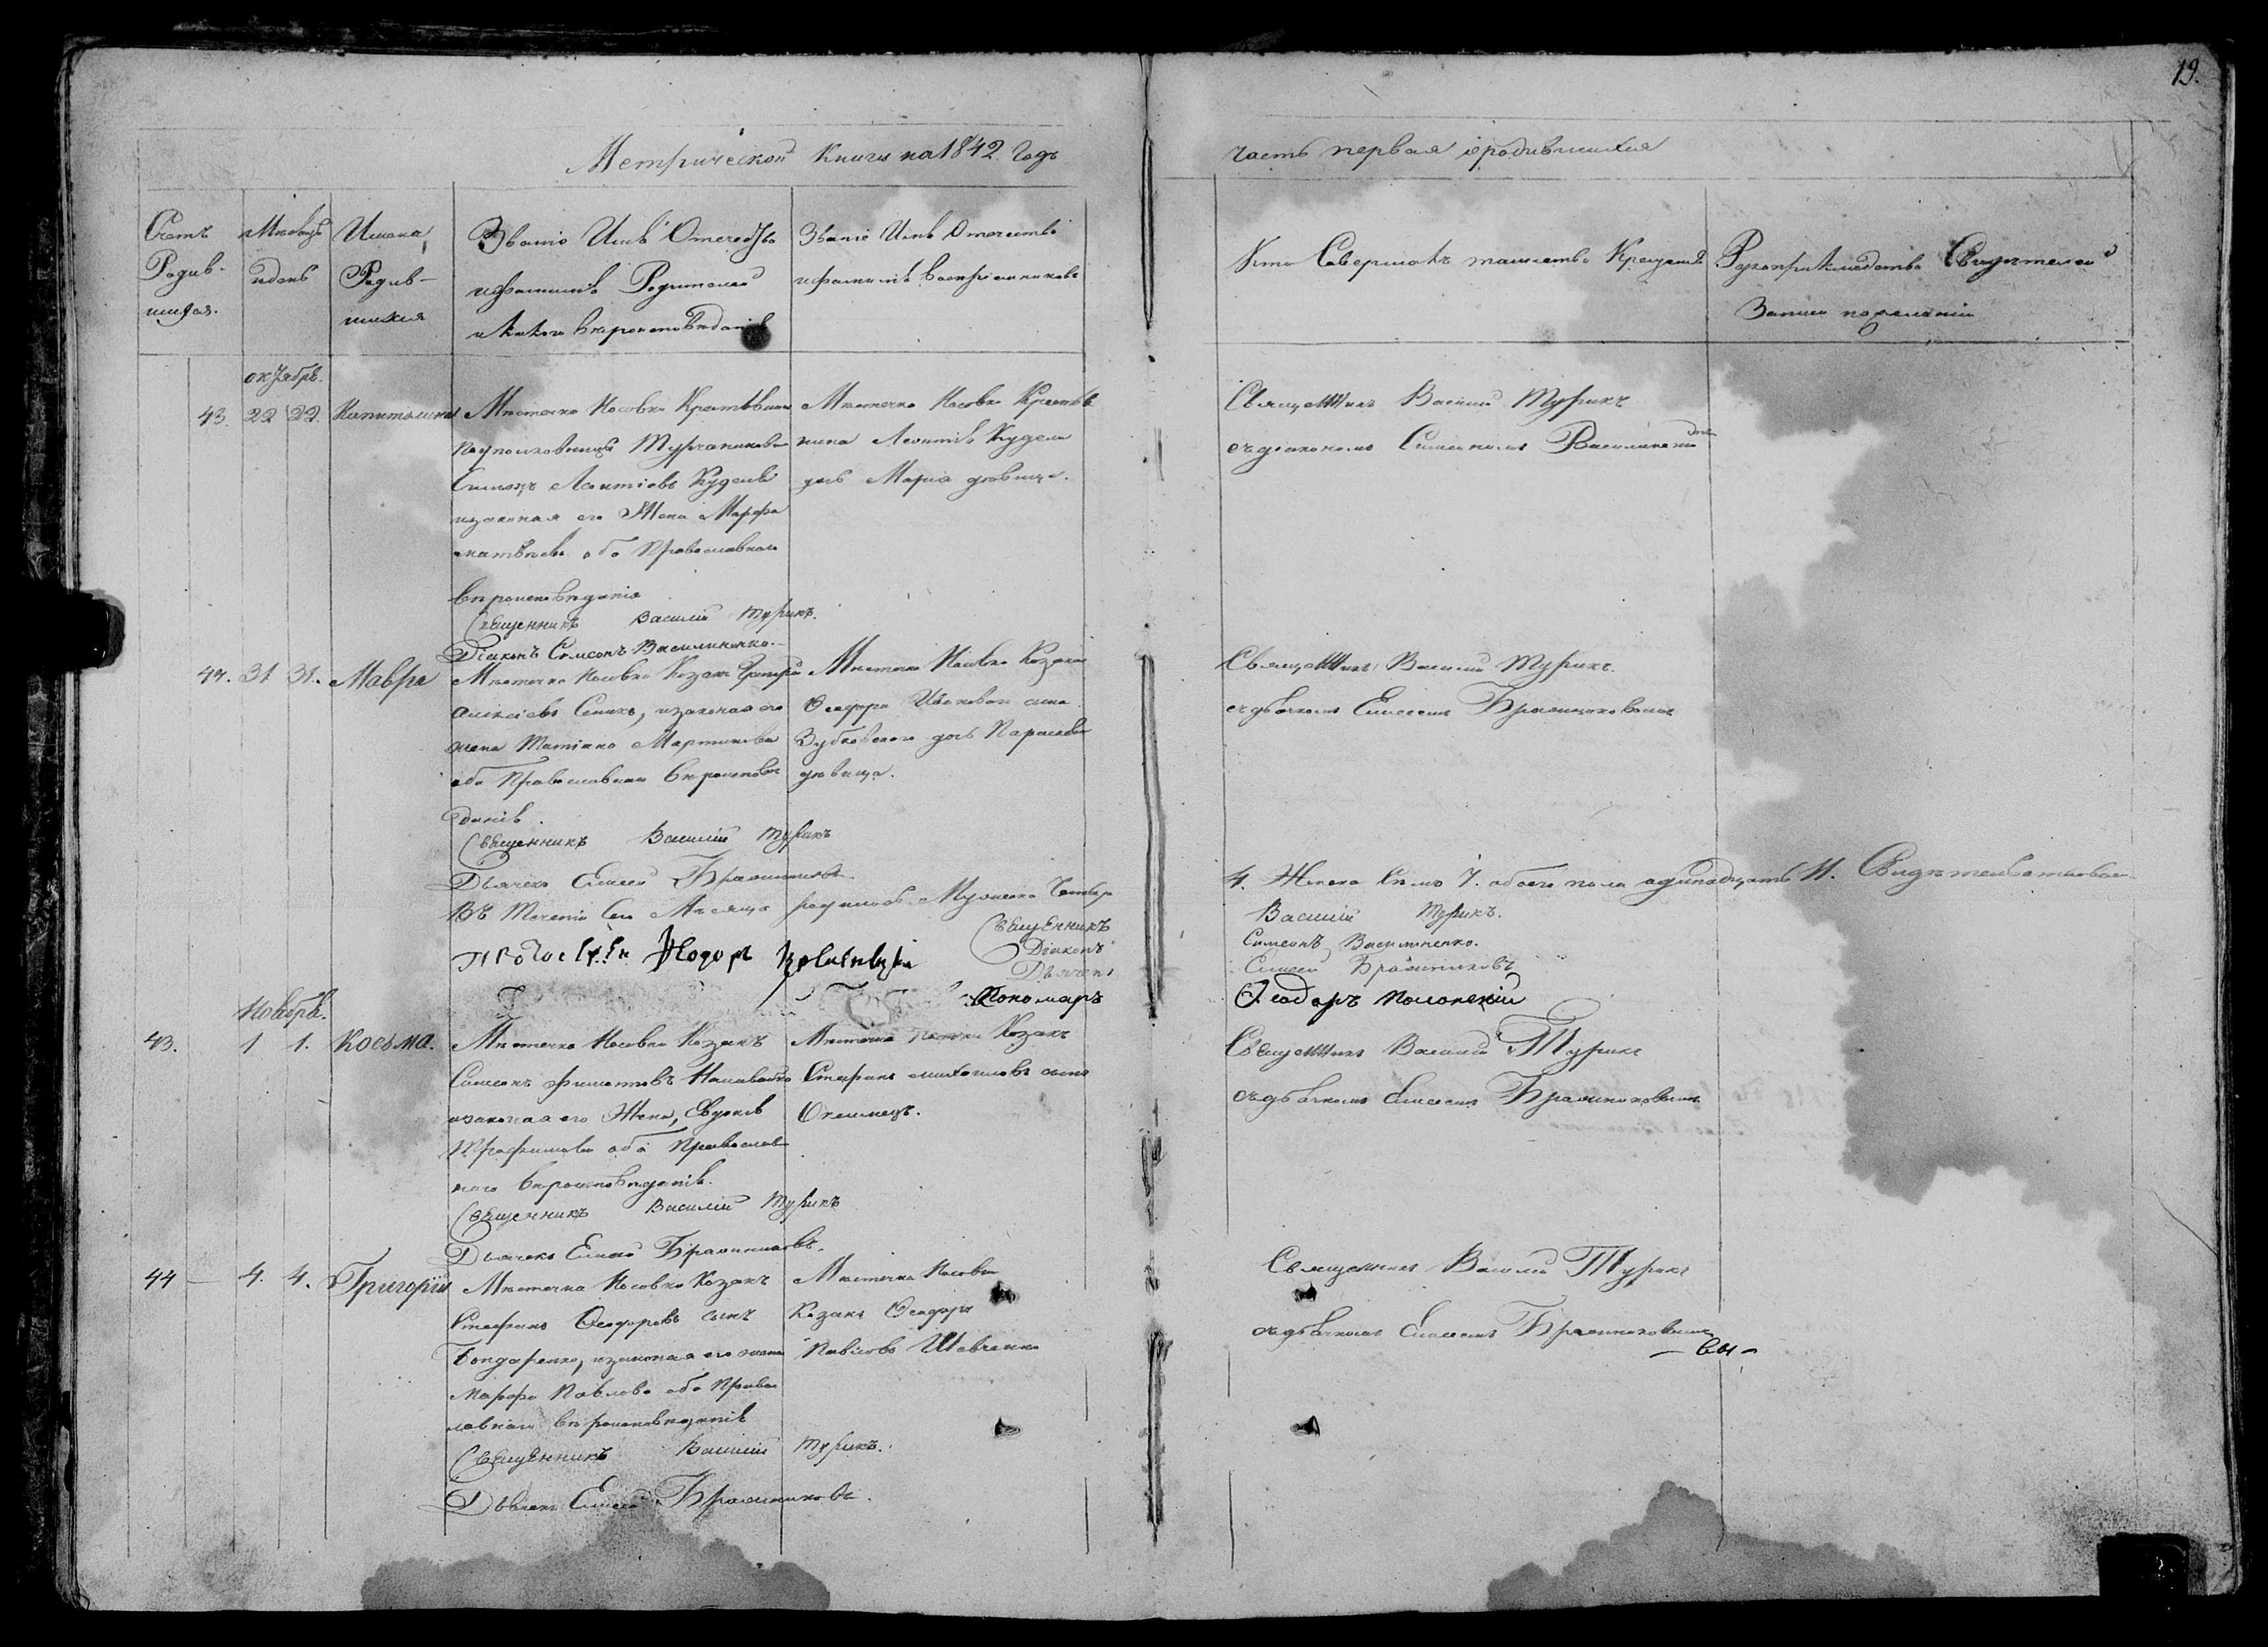 19.
Метрической Книги на 1842 Годъ
часть первая о родившихся
Счетъ
Родив-
шихся.
Мѣсяцъ
и день
Имена
Родив-
шихся
Званіе Имя Отечество
и фамилія Родителей
и какого вѣроисповѣданія
Званіе Имя Отечество
и фамилія воспріемниковъ
Кто Совершалъ таинство Крещенія
Рукоприкладство Свидѣтелей
Записи по желанію
октябрь.
43. 22 22 Капитолина
Мѣстечка Носовки Крестьянинъ
Подполковницы Турчаниновой
Симеонъ Леонтіевъ Куделя
и законная его Жена Марфа
Матѣева оба Православнаго
вѣроисповѣданія
Священникъ Василій Турикъ.
Діаконъ Симеонъ Василиненко.
Мѣстечка Носовки Крестья
нина Леонтія Кудели
дочь Марія дѣвица.
Священникъ Василій Турикъ
съ діакономъ Симеономъ Василиненкомъ
44. 31 31. Мавра
Мѣстечка Носовки Козакъ Григорій
Алексіевъ Сеникъ, и законная его
жена Татіана Мартинова
оба Православнаго вѣроисповѣ
данія.
Священникъ Василій Турикъ
Дьячекъ Елисей
Мѣстечка Носовки Козака
Феодора Иванова сына
Зубковскаго дочь Параскева
дѣвица.
Священникъ Василій Турикъ.
съ дьячкомъ Елисеемъ
Въ Теченіи Сего Мѣсяца родилось Мужеска Четыре
4. Женска Седмь 7. обоего пола одинадцать 11. Свидѣтельствовали
Священникъ Василій Турикъ.
Діаконъ Симеонъ Василиненко.
Дьячекъ Елисей
Пономарь Феодоръ Полонскій
Ноябрь.
43. 1 1. Косьма.
Мѣстечка Носовки Козакъ
Симеонъ Филиповъ
и законная его Жена, Евдокія
Трофимова оба Православ
наго вѣроисповѣданія.
Священникъ Василій Турикъ
Дьячекъ Елисей
Мѣстечка Носовки Козакъ
Стефанъ Михаиловъ сынъ
Священникъ Василій Турикъ
съ дьячкомъ Елисеемъ
44 4. 4. Григорій
Мѣстечка Носовки Козакъ
Стефанъ Феодоровъ сынъ
Бондаренко, и законная его жена
Марфа Павлова оба Правос
лавнаго вѣроисповѣданія
Священникъ Василій Турикъ.
Дьячекъ Елисей
Мѣстечка Носовки
Козакъ Феодоръ
Павловъ Шевченко
Священникъ Василій Турикъ
съ дьячкомъ Елисеемъ